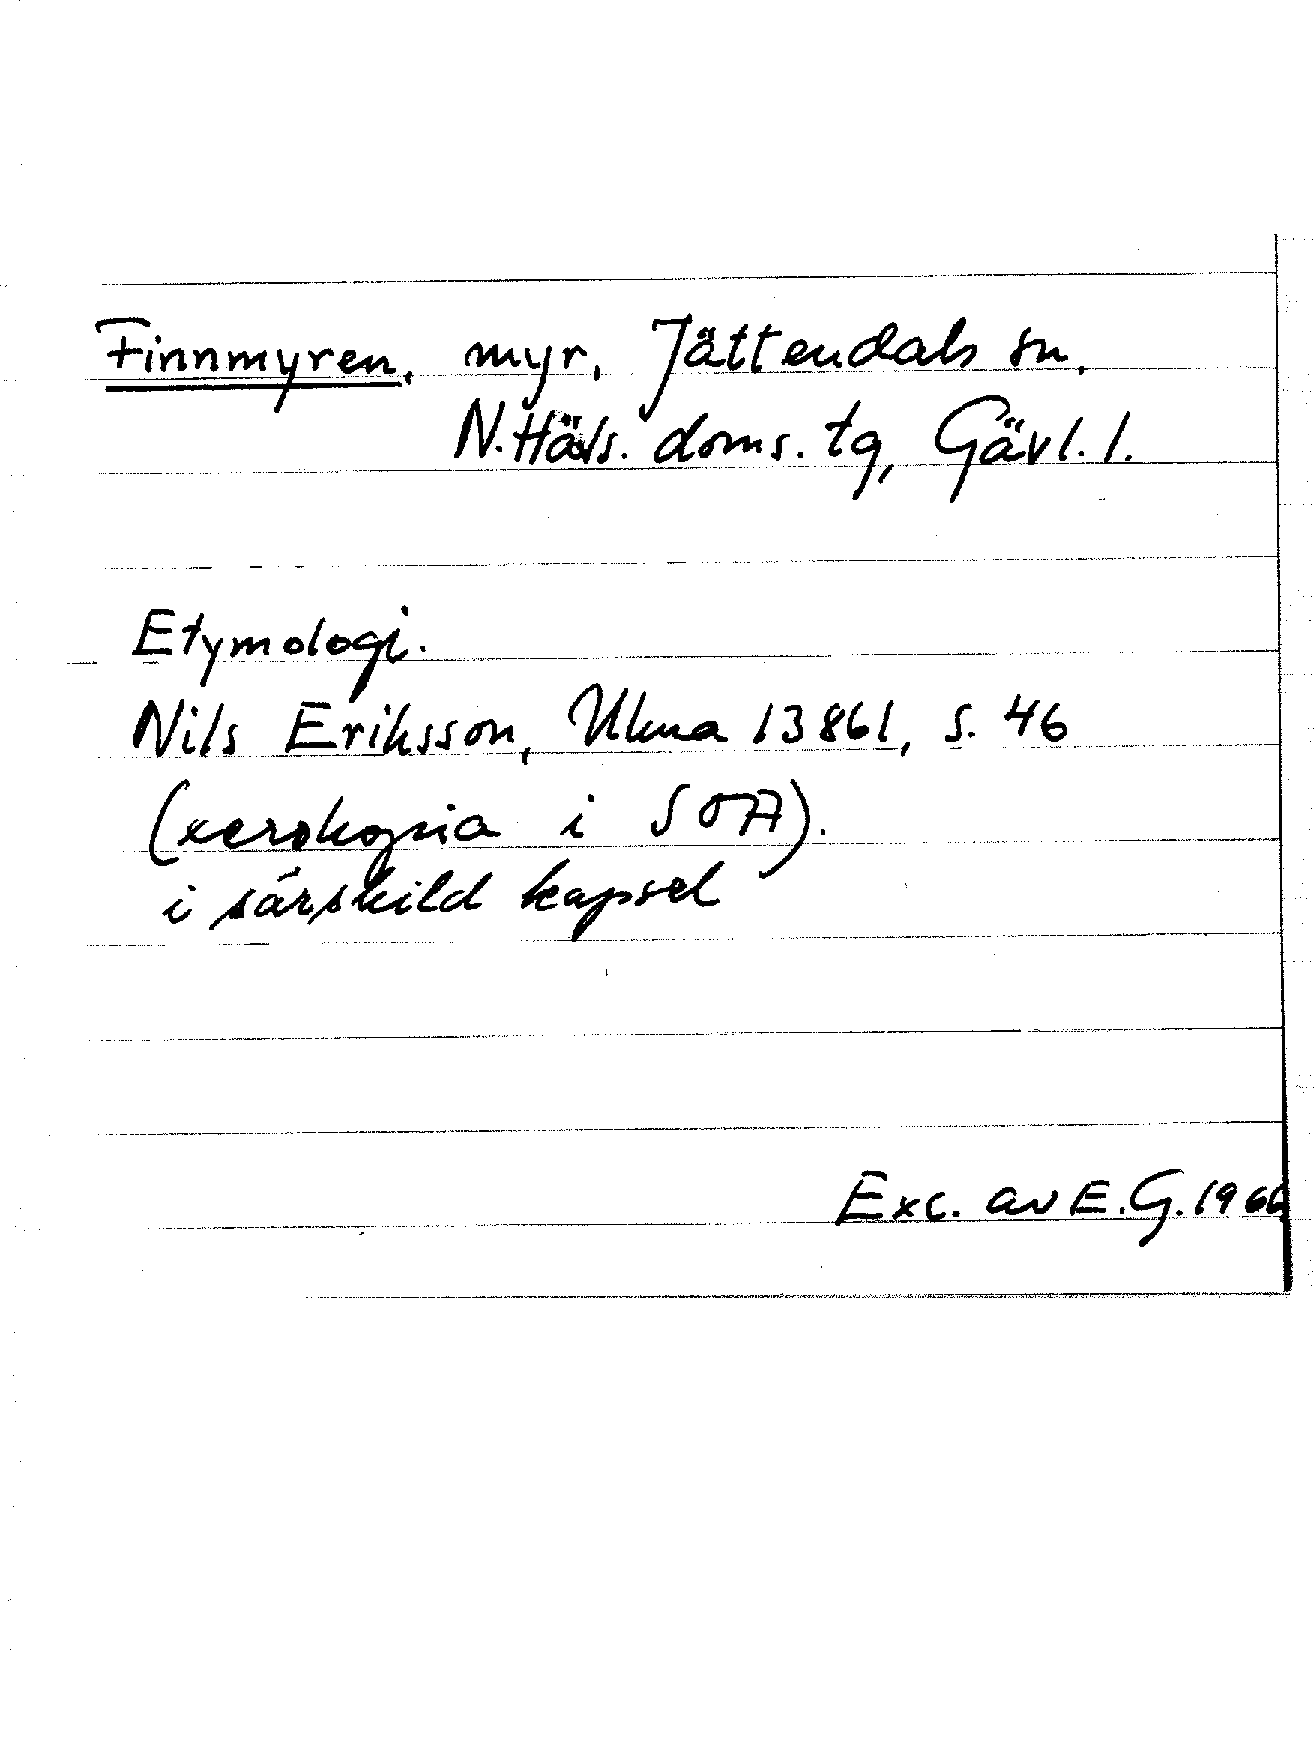 Finnmyren, myr, Jättendals sn,
N. Häls. doms. tg, Gävl. l.
Etymologi.
Nils Eriksson, Ulma 13861, s. 46
(xerokopia i SOA).
i särskild kapsel
Exc. av E.G. 1966